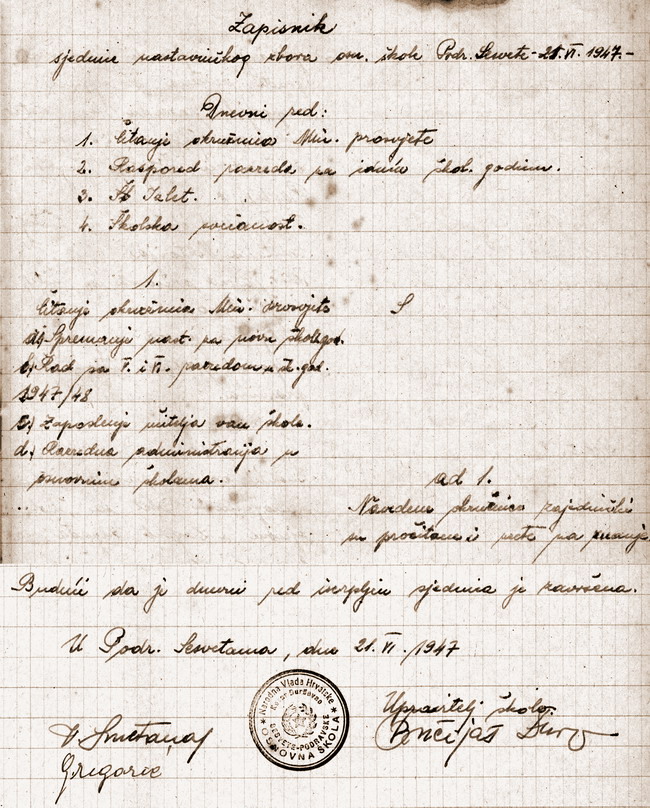 Zapisnik
sjednice nastavničkog zbora osn. škole Podr. Sesvete - 21. VI. 1947. -
Dnevni red:
1. Čitanje okružnica Min. prosvjete
2. Raspored razreda za iduću škol. godinu.
3. Izlet.
4. Školska svečanost.
1.
Čitanje okružnica Min. prosvjete
a) Spremanje nast. za novu škol. god.
b) Rad sa V. i VI. razredom u š. god.
1947/48
c) Zaposlenje učitelja van škole.
d) Razredna administracija u
osnovnim školama.
ad 1.
Navedene okružnice zajednički
su pročitane i uzete na znanje
Budući da je dnevni red iscrpljen sjednica je završena.
U Podr. Sesvetama, dne 21. VI. 1947
Upravitelj škole:
Smetanaj
Gregorec
Narodna Vlada Hrvatske
SESVETE-PODRAVSKE
OSNOVNA ŠKOLA